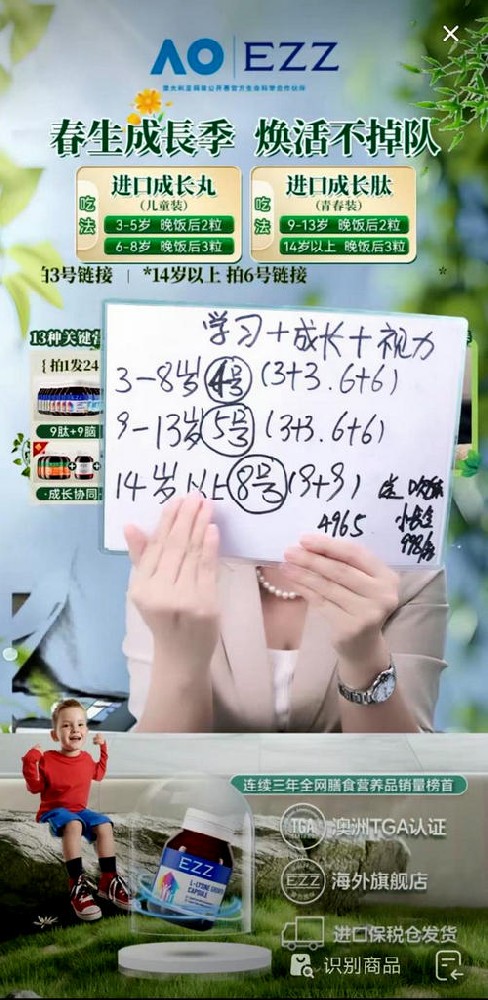 AO | EZZ
澳大利亚网球公开赛官方生命科学合作伙伴
春生成長季 焕活不掉队
进口成长丸
(儿童装)
吃法
3-5岁 晚饭后2粒
6-8岁 晚饭后3粒
进口成长肽
(青春装)
吃法
9-13岁 晚饭后2粒
14岁以上 晚饭后3粒
拍3号链接 | *14岁以上 拍6号链接 *
学习+成长+视力
3-8岁 4号 (3+3.6+6)
9-13岁 5号 (3+3.6+6)
14岁以上 8号 (9+9)
4965
998
13种关键营
{ 拍1发24
9肽+9脑
·成长协同
连续三年全网膳食营养品销量榜首
TGA 澳洲TGA认证
EZZ 海外旗舰店
进口保税仓发货
EZZ
L-LYSINE GROWTH
CAPSULE
识别商品